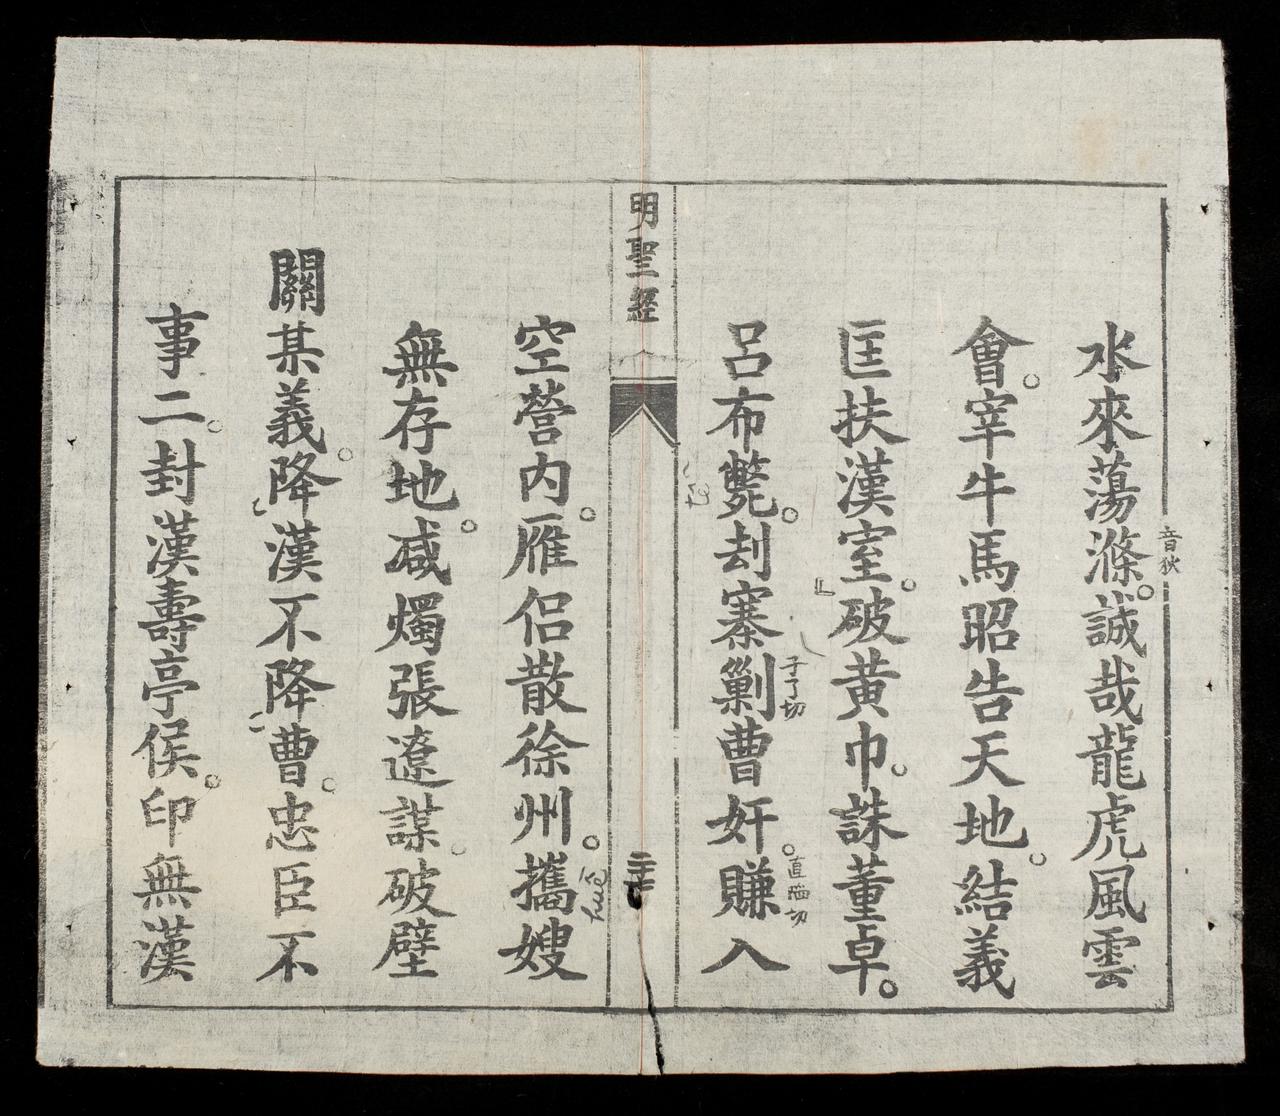 水來蕩滌。誠哉龍虎風雲
音狄
會。宰牛馬昭告天地。結義
匡扶漢室。破黃巾。誅董卓。
呂布斃。刦寨剿曹奸。賺入
子了切
直陷切
明聖經
空營內。雁侶散徐州。攜嫂
hue
無存地。减燭張遼謀。破壁
關某義。降漢不降曹。忠臣不
事二。封漢壽亭侯。印無漢